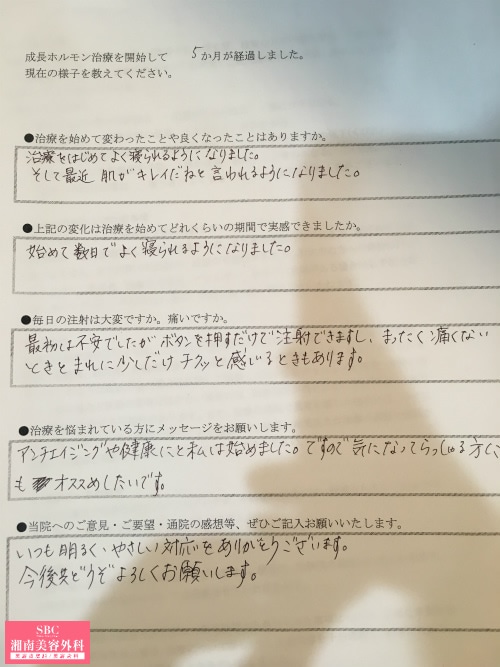 成長ホルモン治療を開始して 5か月が経過しました。
現在の様子を教えてください。
●治療を始めて変わったことや良くなったことはありますか。
治療をはじめてよく寝られるようになりました。
そして最近 肌がキレイだねと言われるようになりました。
●上記の変化は治療を始めてどれくらいの期間で実感できましたか。
始めて数日でよく寝られるようになりました。
●毎日の注射は大変ですか。痛いですか。
最初は不安でしたがボタンを押すだけで注射できますし、まったく痛くない
ときとまれに少しだけチクッと感じるときもあります。
●治療を悩まれている方にメッセージをお願いします。
アンチエイジングや健康にと私は始めました。ですので気になってらっしゃる方に
もオススメしたいです。
●当院へのご意見・ご要望・通院の感想等、ぜひご記入お願いいたします。
いつも明るく、やさしい対応をありがとうございます。
今後共どうぞよろしくお願いします。
SBC
湘南美容外科